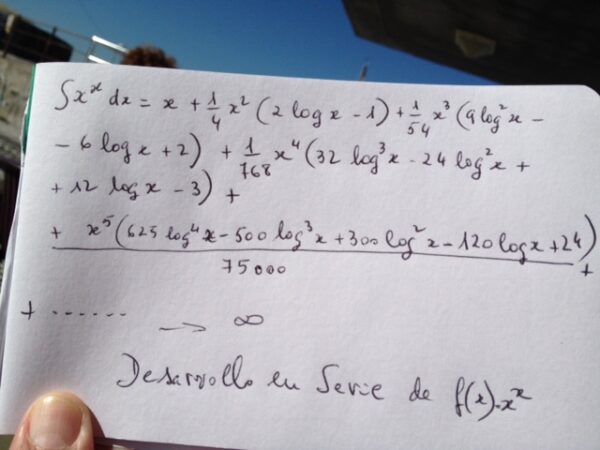 ∫x^x dx = x + 1/4 x² (2 log x - 1) + 1/54 x³ (9 log² x -
- 6 log x + 2) + 1/768 x⁴ (32 log³ x - 24 log² x +
+ 12 log x - 3) +
+ x⁵ (625 log⁴ x - 500 log³ x + 300 log² x - 120 log x + 24) +
75000
+ ...... → ∞
Desarrollo en Serie de f(x)=x^x